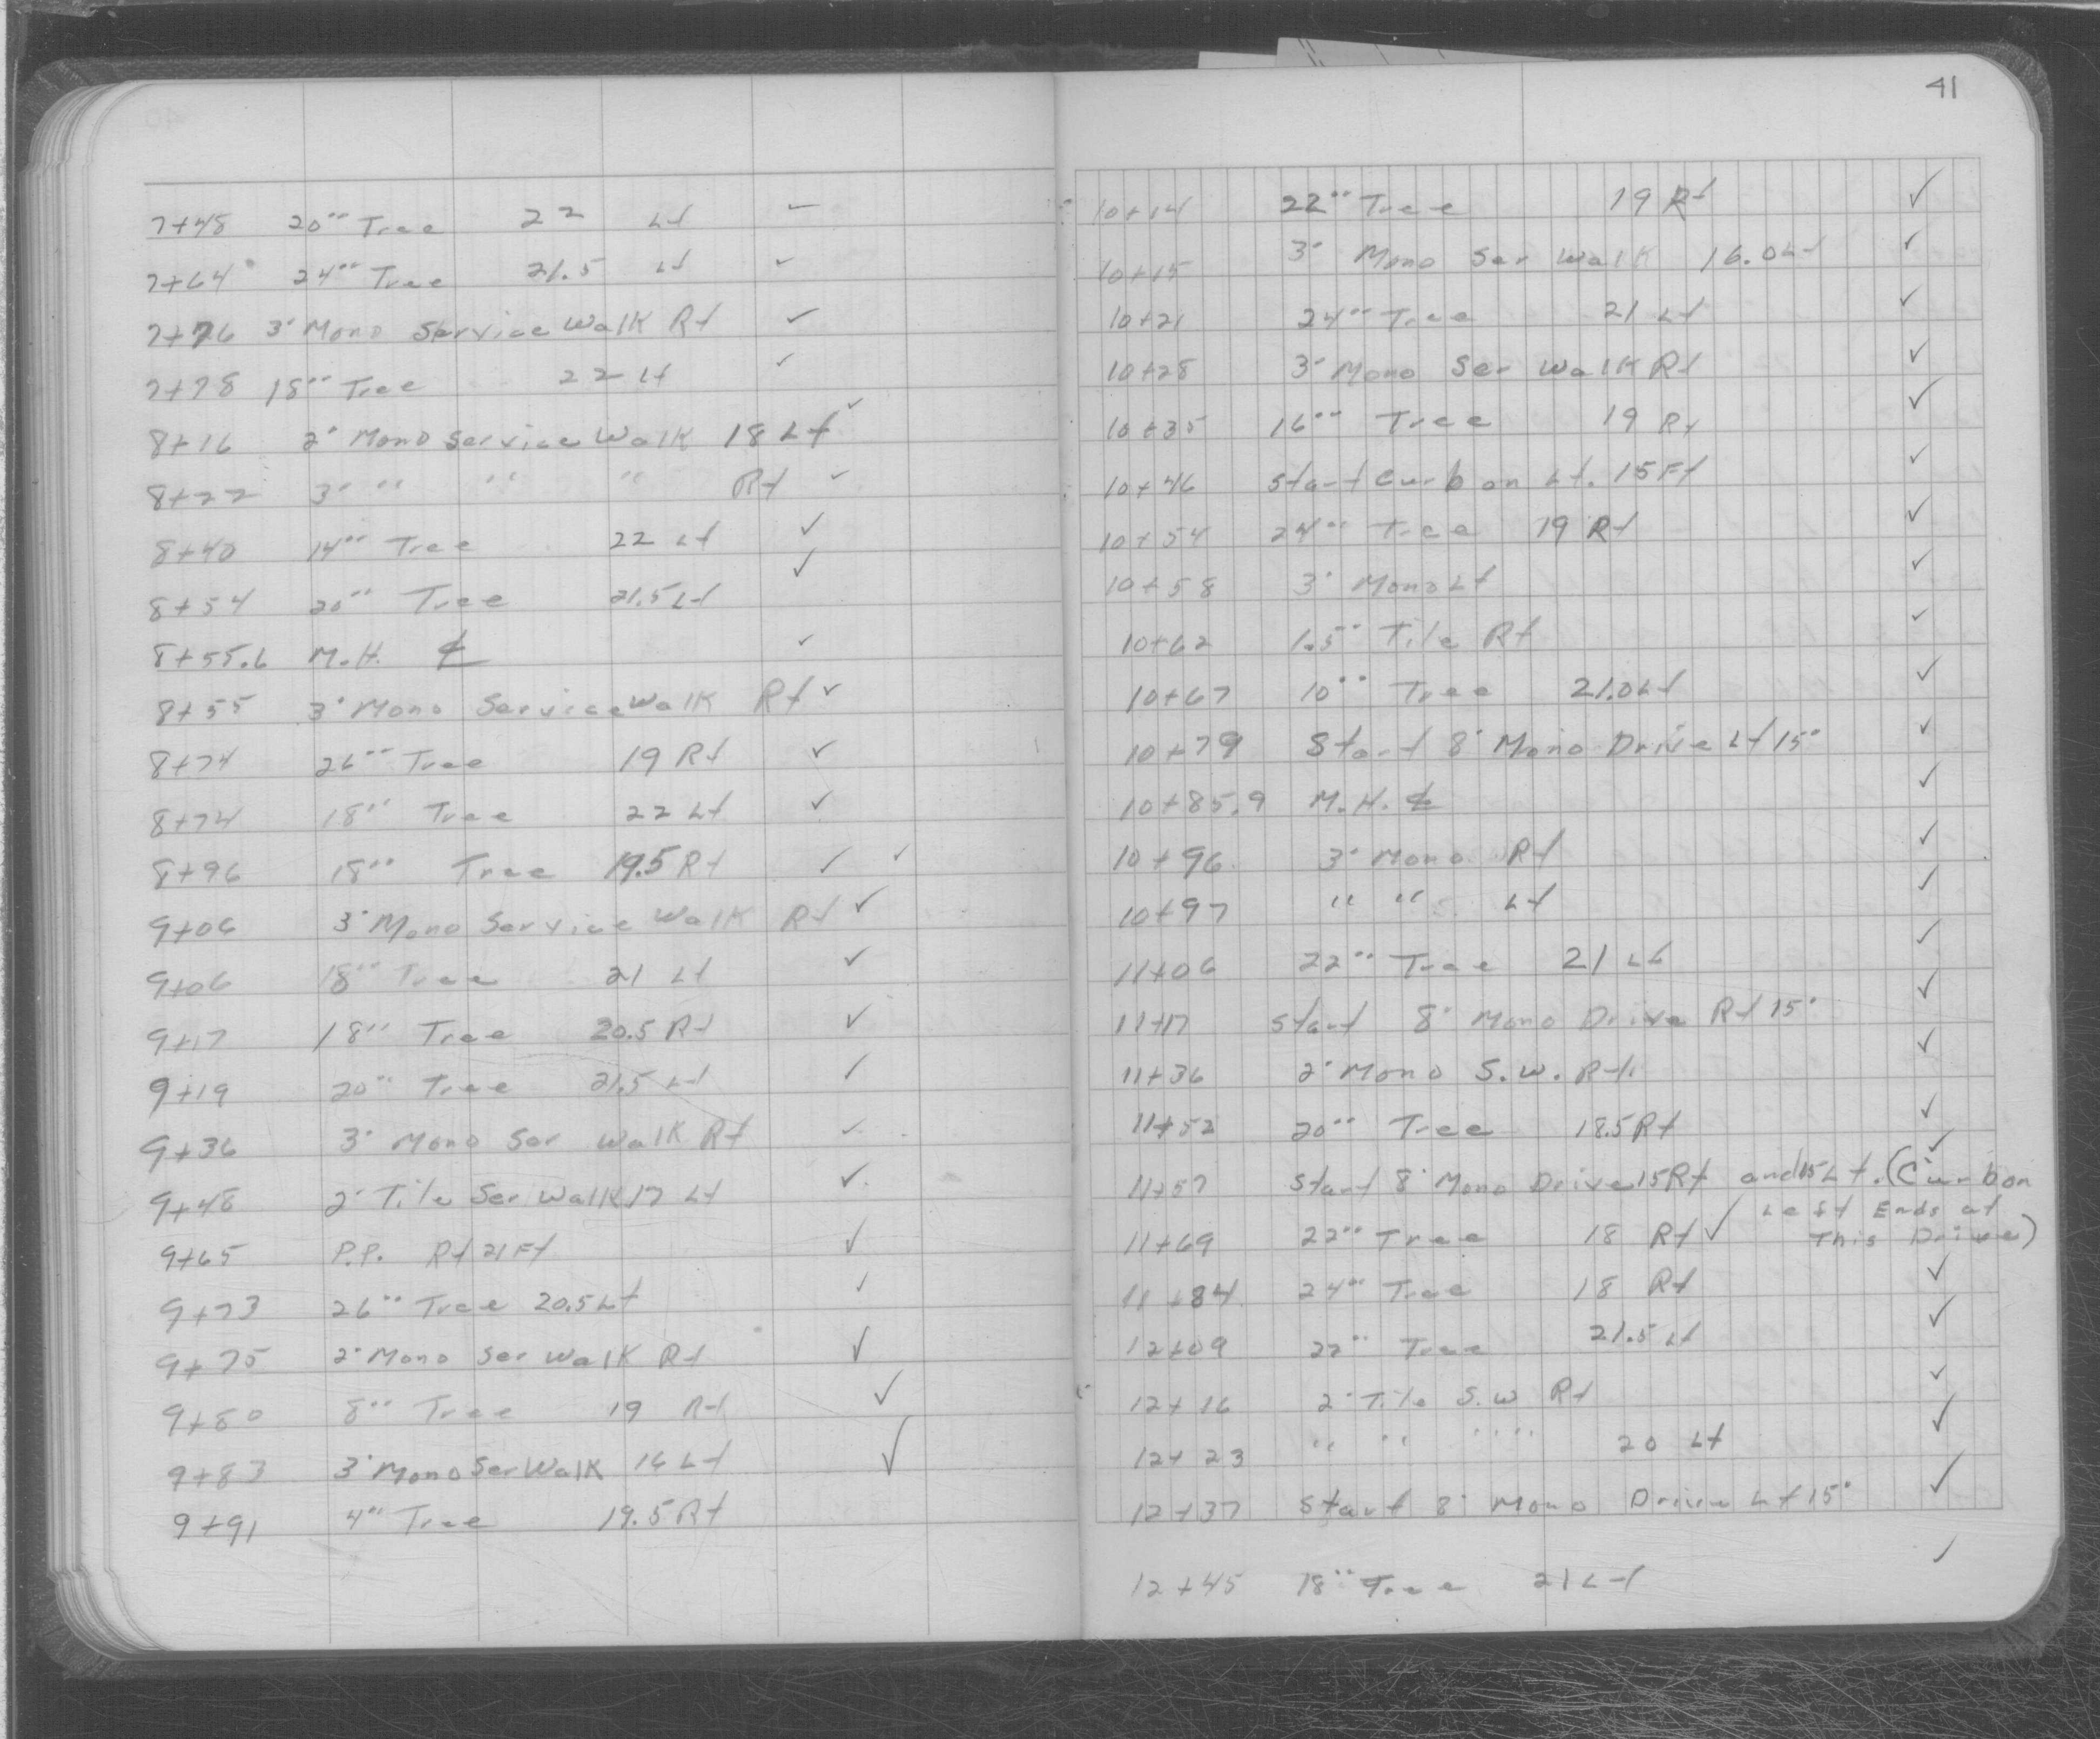 7+48 20" Tree 22 Lt ✓
7+64 24" Tree 21.5 Lt ✓
7+76 3' Mono Service Walk Rt ✓
7+78 18" Tree 22 Lt ✓
8+16 2' Mono Service Walk 18 Lt ✓
8+22 3' " " " Rt ✓
8+40 14" Tree 22 Lt ✓
8+54 20" Tree 21.5 Lt ✓
8+55.6 M.H. ℄ ✓
8+55 3' Mono Service Walk Rt ✓
8+74 26" Tree 19 Rt ✓
8+74 18" Tree 22 Lt ✓
8+96 18" Tree 19.5 Rt ✓ ✓
9+06 3' Mono Service Walk Rt ✓
9+06 18" Tree 21 Lt ✓
9+17 18" Tree 20.5 Rt ✓
9+19 20" Tree 21.5 Lt ✓
9+36 3' Mono Ser Walk Rt ✓
9+48 2' Tile Ser Walk 17 Lt ✓
9+65 P.P. Rt 21 Ft ✓
9+73 26" Tree 20.5 Lt ✓
9+75 2' Mono Ser Walk Rt ✓
9+80 8" Tree 19 Rt ✓
9+83 3' Mono Ser Walk 16 Lt ✓
9+91 4" Tree 19.5 Rt
41
10+14 22" Tree 19 Rt ✓
10+15 3' Mono Ser Walk 16.0 Lt ✓
10+21 24" Tree 21 Lt ✓
10+28 3' Mono Ser Walk Rt ✓
10+35 16" Tree 19 Rt ✓
10+46 Start Curb on Lt. 15 Ft ✓
10+54 24" Tree 19 Rt ✓
10+58 3' Mono Lt ✓
10+62 1.5" Tile Rt ✓
10+67 10" Tree 21.0 Lt ✓
10+79 Start 8' Mono Drive Lt 15' ✓
10+85.9 M.H. ℄ ✓
10+96 3' Mono Rt ✓
10+97 " " Lt ✓
11+06 22" Tree 21 Lt ✓
11+17 Start 8' Mono Drive Rt 15' ✓
11+36 2' Mono S.W. Rt. ✓
11+52 20" Tree 18.5 Rt ✓
11+57 Start 8' Mono Drive 15 Rt and 15 Lt. (Curb on ✓
Left Ends at
This Drive)
11+69 22" Tree 18 Rt ✓
11+84 24" Tree 18 Rt ✓
12+09 22" Tree 21.5 Lt ✓
12+16 2' Tile S.W Rt ✓
12+23 " " " " 20 Lt ✓
12+37 Start 8' Mono Drive Lt 15' ✓
12+45 18" Tree 21 Lt ✓